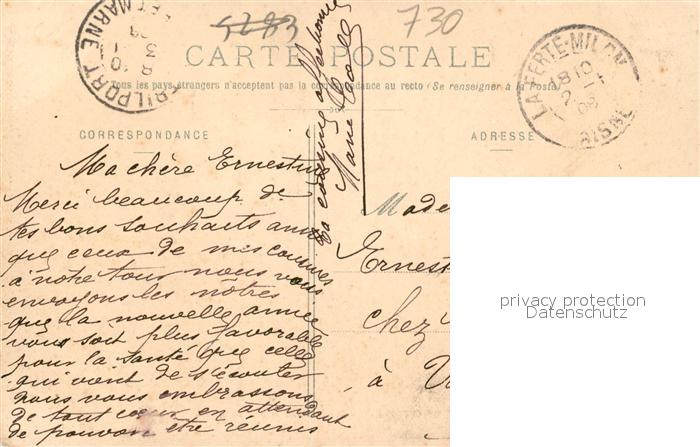 5283
730
CARTE POSTALE
Tous les pays étrangers n'acceptent pas la correspondance au recto (Se renseigner à la Poste)
TRILPORT
ET MARNE
LA FERTE-MILON
18 10
08
AISNE
CORRESPONDANCE
ADRESSE
Ma chère Ernestine
Merci beaucoup de
tes bons souhaits ainsi
que ceux de mes cousines
à notre tour nous vous
envoyons les nôtres
que la nouvelle année
vous soit plus favorable
pour la santé que celle
qui vient de s'écouter
nous vous embrassons
de tout cœur en attendant
de pouvoir être réunis
Ta cousine affectionnée
Marie
Made
Ernest
chez
à
privacy protection
Datenschutz